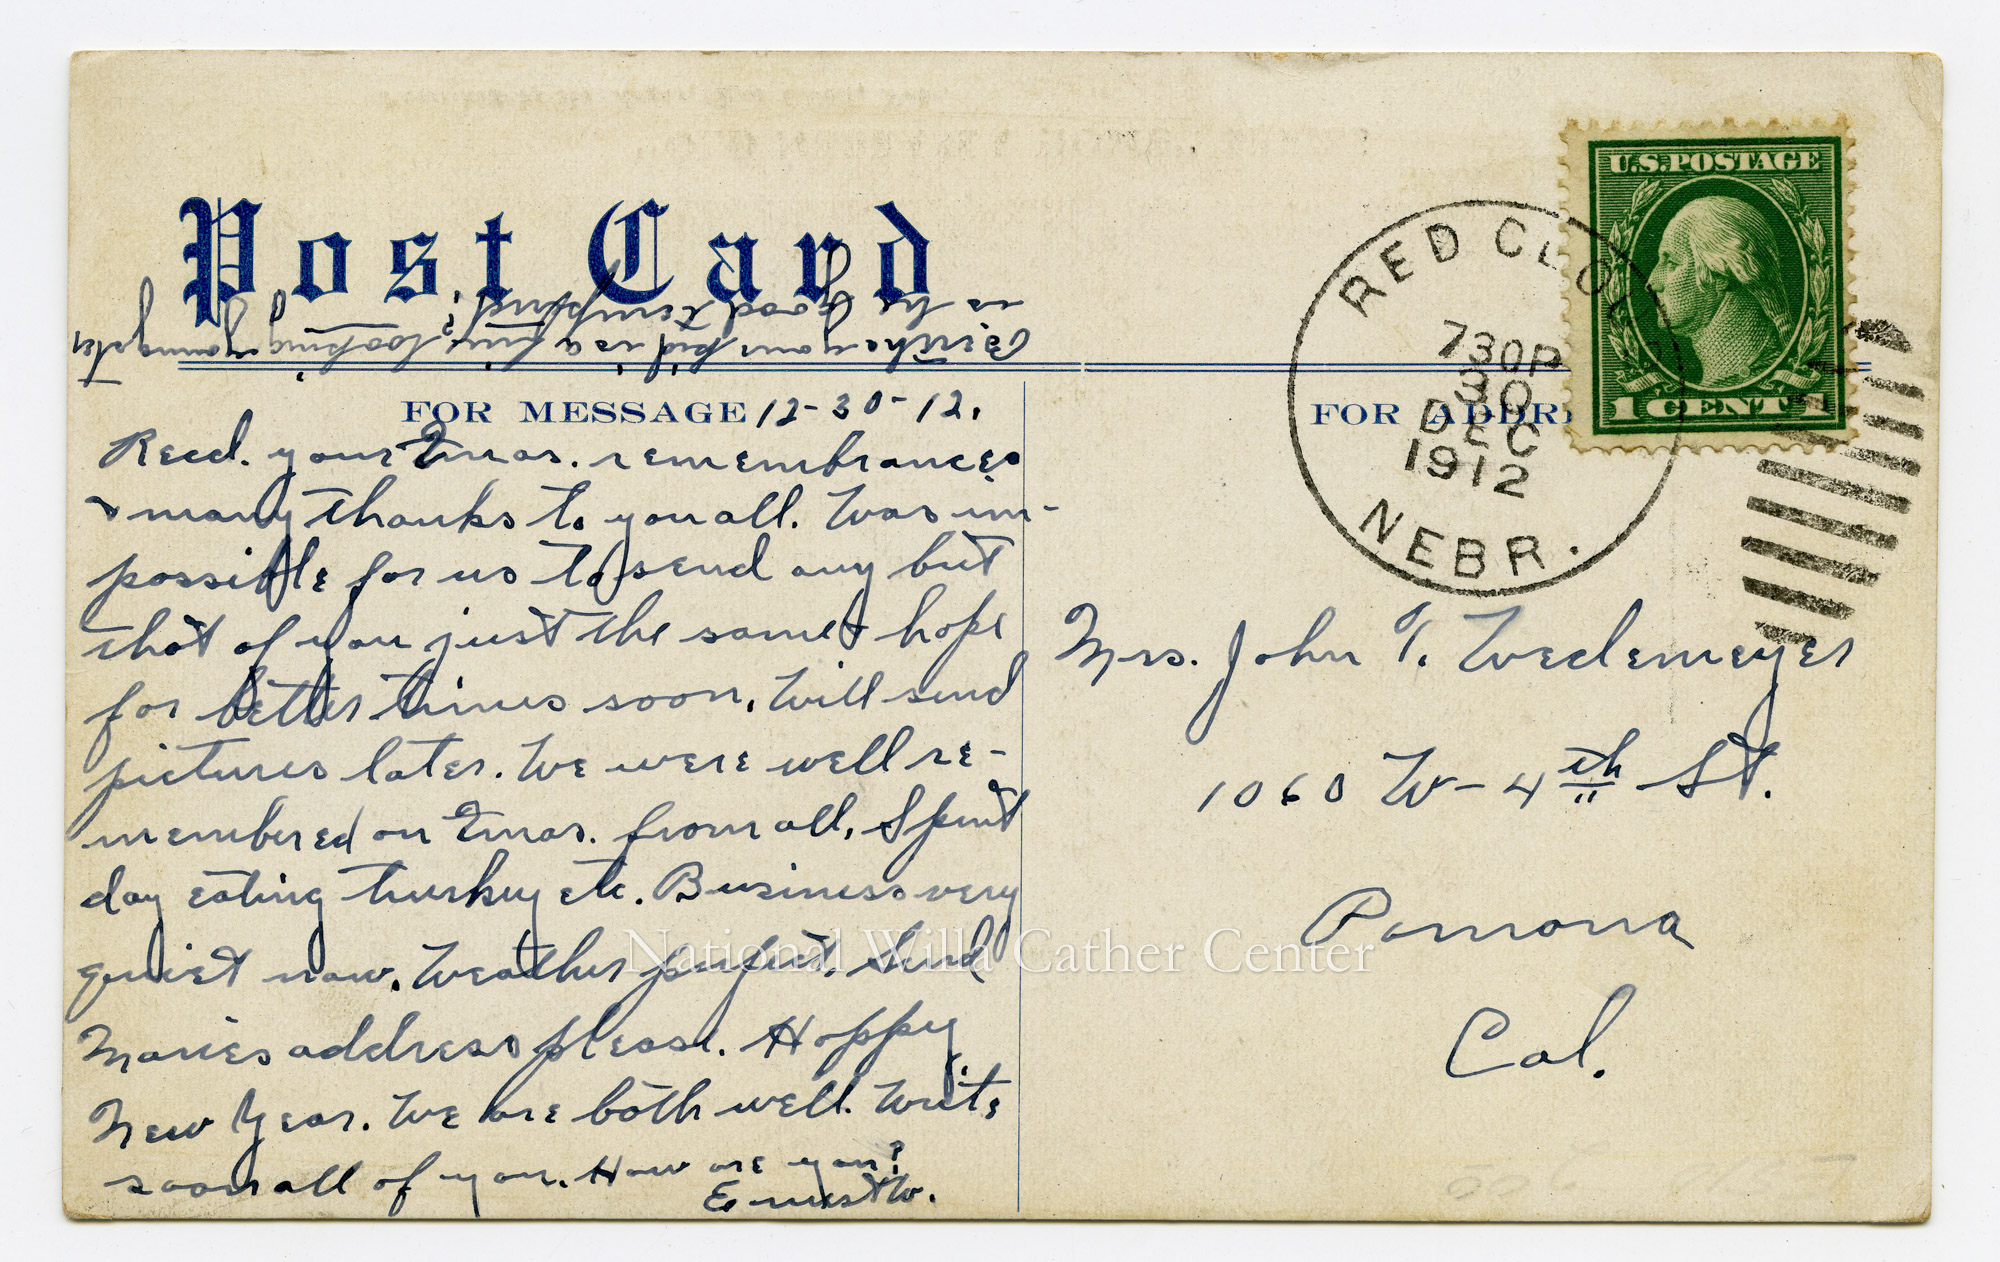 Post Card
Bertha your kid is a fine looking youngster
is he good tempered?
FOR MESSAGE 12-30-12.
FOR ADDR
U.S. POSTAGE
1 CENT 1
RED CLOUD
730P
30
DEC
1912
NEBR.
Recd. your Xmas. remembrances
& many thanks to you all. Was im-
possible for us to send any but
thot of you just the same & hope
for better times soon. Will send
pictures later. We were well re-
membered on Xmas. from all. Spent
day eating turkey etc. Business very
quiet now. Weather perfect. Send
Maries address please. Happy
New Year. We are both well. Write
soon all of you. How are you?
Ernest W.
Mrs. John T. Wedemeyer
1060 W-4th St.
Pomona
Cal.
National Willa Cather Center